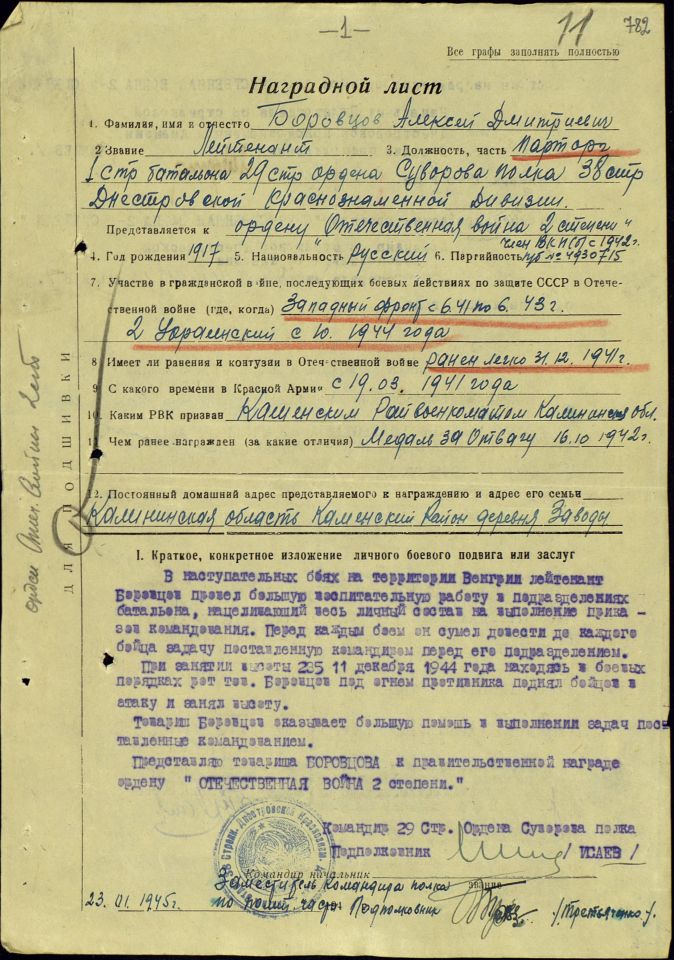 —1— 11 782
Все графы заполнять полностью
Наградной лист
1. Фамилия, имя и отчество Боровцов Алексей Дмитриевич
2 Звание Лейтенант 3. Должность, часть Парторг
1 стр батальона 29 стр ордена Суворова полка 38 стр
Днестровской Краснознаменной Дивизии.
Представляется к ордену „Отечественная война 2 степени"
член ВКП(б) с 1942г.
4. Год рождения 1917 5. Национальность русский 6. Партийность п/б № 4930715
7. Участие в гражданской войне, последующих боевых действиях по защите СССР в Отече-
ственной войне (где, когда) Западный фронт с 6.41 по 6. 43г.
2 Украинский с 10. 1944 года
8 Имеет ли ранения и контузии в Отечественной войне ранен легко 31.12. 1941г.
9 С какого времени в Красной Армии с 19.03. 1941 года
10. Каким РВК призван Каменским Райвоенкоматом Калининская обл.
11. Чем ранее награжден (за какие отличия) Медаль за Отвагу 16.10 1942г.
12. Постоянный домашний адрес представляемого к награждению и адрес его семьи
Калининская область Каменский Район деревня Заводы
ДЛЯ ПОДШИВКИ
орден Отеч. Войны 2 степ
I. Краткое, конкретное изложение личного боевого подвига или заслуг
В наступательных боях на территории Венгрии лейтенант
Боровцов провел большую воспитательную работу в подразделениях
батальона, нацеливающий весь личный состав на выполнение прика -
зов командования. Перед каждым боем он сумел довести до каждого
бойца задачу поставленную командиром перед его подразделением.
При занятии высоты 235 11 декабря 1944 года находясь в боевых
порядках рот тов. Боровцов под огнем противника поднял бойцов в
атаку и занял высоту.
Товарищ Боровцов оказывает большую помощь в выполнении задач пос
тавленные командованием.
Представляю товарища БОРОВЦОВА к правительственной награде
ордену " ОТЕЧЕСТВЕННАЯ ВОЙНА 2 степени."
Командир 29 Стр. Ордена Суворова полка
Подполковник / ИСАЕВ /
Командир начальник
звание
Заместитель Командира полка
23.01.1945г. по полит части Подполковник /Третьяченко/.